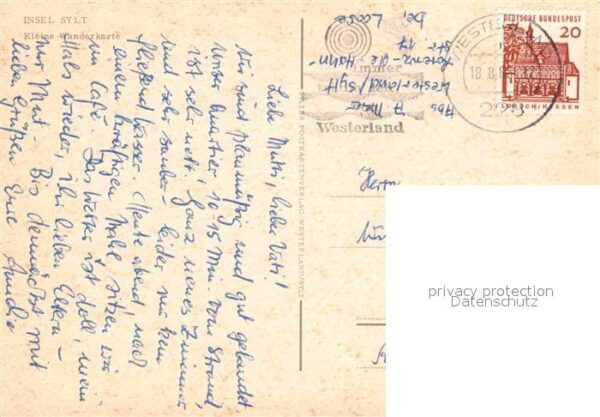 INSEL SYLT
Kleine Wanderkarte
Liebe Mutti, lieber Vati!
Wir sind planmäßig und gut gelandet
Unser Quartier 10-15 Min. vom Strand
ist sehr nett. Ganz neues Zimmer
und sehr sauber leider nur kein
fließend Wasser. Heute abend nach
einem kräftigen Mahl sitzen wir
im Café. Das Wetter ist doll, mein
Hals wieder, ihr lieben Eltern
nur Mut. Bis demnächst mit
lieben Grüßen Eure
POSTKARTENVERLAG WESTERLAND/SYLT
Abs
Westerland/Sylt
Lorenz-de-Hahn
Str. 17
bei
immer
Westerland
WESTERLAND
18.8.
DEUTSCHE BUNDESPOST
20
LORSCH/HESSEN
Herrn
privacy protection
Datenschutz